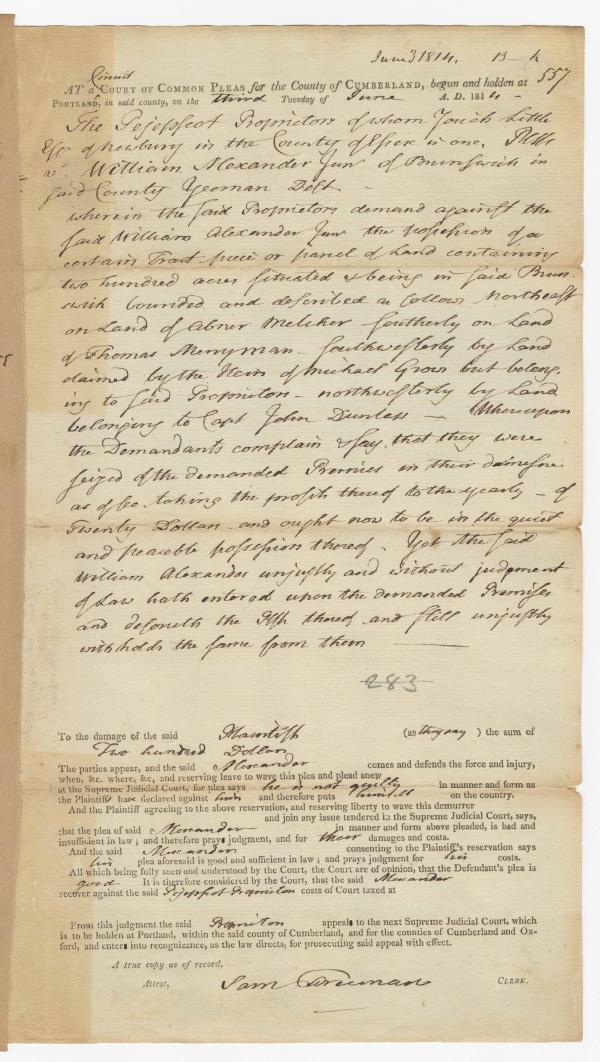 June 3 1814. B - k
557
Circuit
AT a COURT OF COMMON PLEAS for the County of CUMBERLAND, begun and holden at
PORTLAND, in said county, on the third Tuesday of June A. D. 1814 -
The Pejepscot Proprietors of whom Josiah Little
Esqr of Newbury in the County of Essex is one. Pltffs
vs. William Alexander Junr of Brunswick in
said County Yeoman Deft. -
wherein the said Proprietors demand against the
said William Alexander Junr the possession of a
certain Tract piece or parcel of Land containing
two hundred acres situated & being in said Bruns-
wick bounded and described as follows Northeast
on Land of Abner Melcher Southerly on Land
of Thomas Merryman - Southwesterly by Land
claimed by the Heirs of Michael Grows but belong-
ing to said Proprietors - northwesterly by Land
belonging to Capt John Dunlap - Whereupon
the Demandants complain & say, that they were
seized of the demanded Premises in their demesne
as of fee taking the profits thereof to the yearly - of
Twenty Dollars and ought now to be in the quiet
and peacable possession thereof. Yet the said
William Alexander unjustly and without judgment
of Law hath entered upon the demanded Premises
and the thereof and still unjustly
withholds the same from them
283
To the damage of the said Plaintiffs (as they say ) the sum of
Two hundred Dollars
The parties appear, and the said Alexander comes and defends the force and injury,
when, &c. where, &c, and reserving leave to wave this plea and plead anew
at the Supreme Judicial Court, for plea says he is not guilty in manner and form as
the Plaintiffs have declared against him and therefore puts himself on the country.
And the Plaintiff agreeing to the above reservation, and reserving liberty to wave this demurrer
and join any issue tendered in the Supreme Judicial Court, says,
that the plea of said Alexander in manner and form above pleaded, is bad and
insufficient in law ; and therefore prays judgment, and for their damages and costs.
And the said Alexander consenting to the Plaintiff's reservation says
his plea aforesaid is good and sufficient in law ; and prays judgment for his costs.
All which being fully seen and understood by the Court, the Court are of opinion, that the Defendant's plea is
good. It is therefore considered by the Court, that the said Alexander
recover against the said Pejepscot Proprietors costs of Court taxed at
From this judgment the said Proprietors appeal to the next Supreme Judicial Court, which
is to be holden at Portland, within the said county of Cumberland, and for the counties of Cumberland and Ox-
ford, and enters into recognizance, as the law directs, for prosecuting said appeal with effect.
A true copy as of record.
Attest, Sam Freeman CLERK.